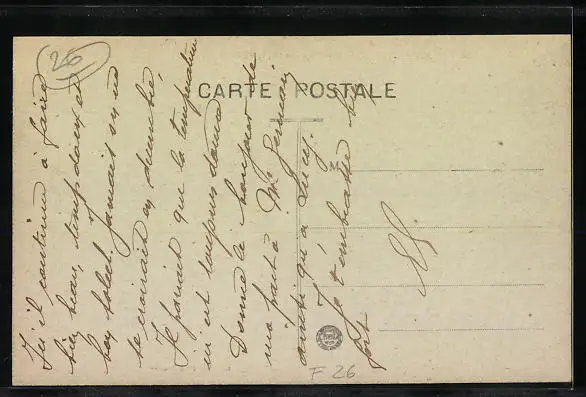 CARTE POSTALE
26
Ici il continue à faire
bien beau, temps doux et
bon soleil. Jamais on ne
se croirait en décembre,
Il paraît que la température
ici est toujours douce
Donne le bonjour de
ma part à Mr Germain
ainsi qu'à Lucy.
Je t'embrasse bien
fort
F 26